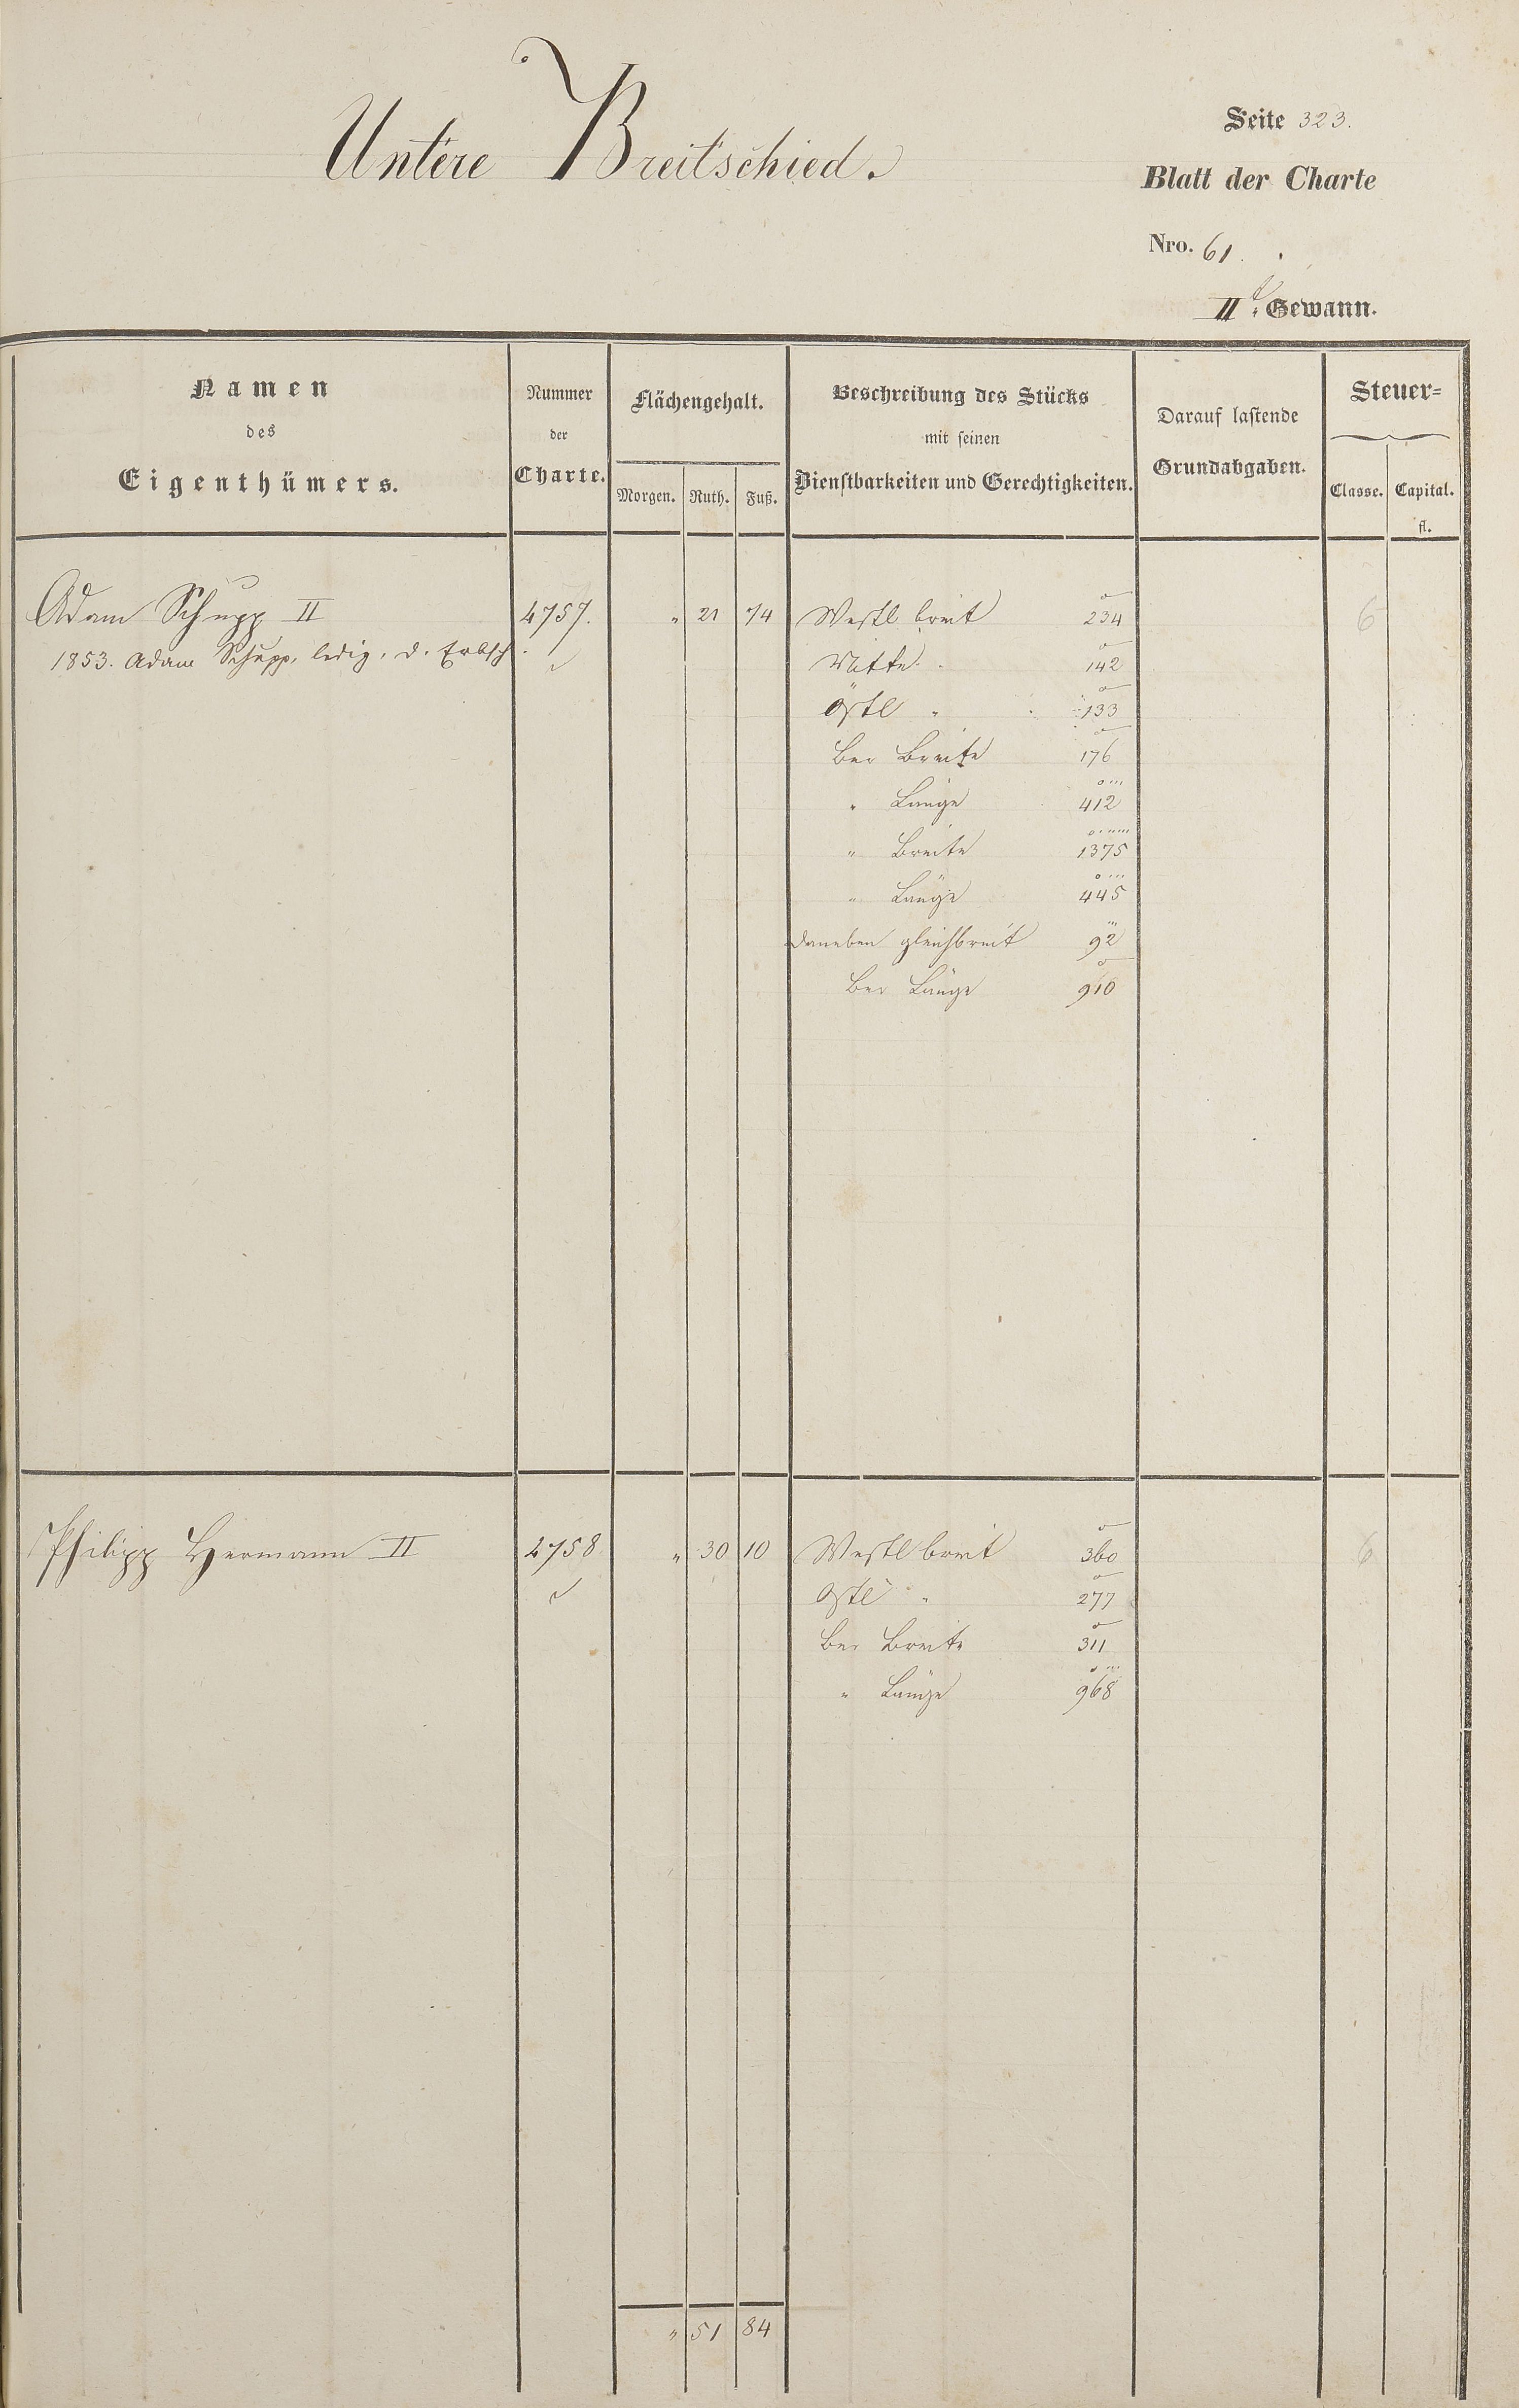 Untere Breitschied.
Seite 323.
Blatt der Charte
Nro. 61.
II. Gewann.
Namen
des
Eigenthümers.
Nummer
der
Charte.
Flächengehalt.
Morgen. Ruth. Fuß.
Beschreibung des Stücks
mit seinen
Dienstbarkeiten und Gerechtigkeiten.
Darauf lastende
Grundabgaben.
Steuer=
Classe. Capital.
fl.
Adam Schupp II 4757. " 21 74 Westl breit 234 6
1853. Adam Schupp, ledig, d. Erbsch. Mitte " 142
Östl " 133
Ber Breite 176
" Länge 412
" Breite 1375
" Länge 445
daneben gleichbreit 92
Ber Länge 910
Philipp Hermann II 4758 " 30 10 Westl breit 360 6
Östl " 277
Ber Breite 311
" Länge 968
" 51 84